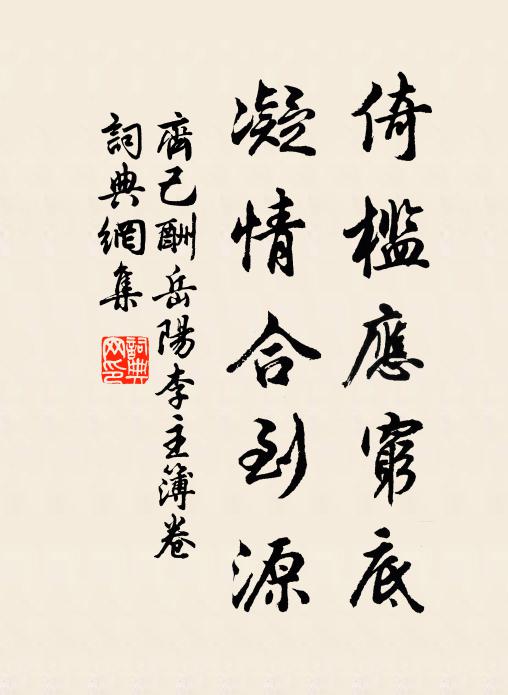 倚檻應窮底
凝情合到源
齊己酬岳陽李主簿卷
詞典網集
詞典
网印